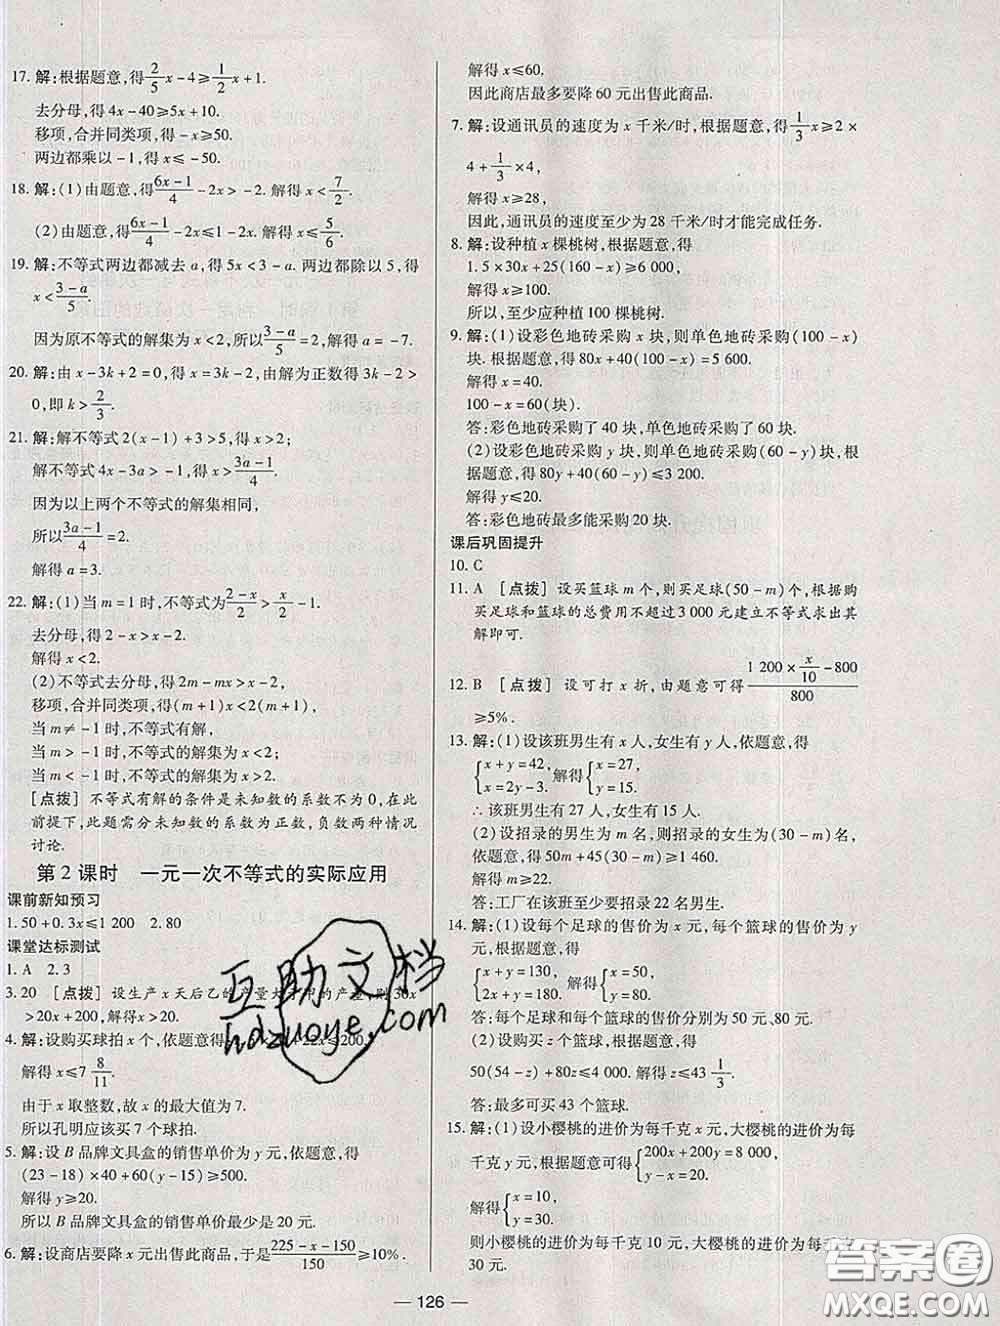 17. 解:根据题意,得2/5x-4≥1/2x+1.
去分母,得4x-40≥5x+10.
移项,合并同类项,得-x≥50.
两边都乘以-1,得x≤-50.
18. 解:(1)由题意,得(6x-1)/4-2x>-2. 解得x<7/2.
(2)由题意,得(6x-1)/4-2x≤1-2x. 解得x≤5/6.
19. 解:不等式两边都减去a,得5x<3-a. 两边都除以5,得
x<(3-a)/5.
因为原不等式的解集为x<2,所以(3-a)/5=2,解得a=-7.
20. 解:由x-3k+2=0,得x=3k-2,由解为正数得3k-2>
0,即k>2/3.
21. 解:解不等式2(x-1)+3>5,得x>2;
解不等式4x-3a>-1,得x>(3a-1)/4.
因为以上两个不等式的解集相同,
所以(3a-1)/4=2.
解得a=3.
22. 解:(1)当m=1时,不等式为(2-x)/2>x/2-1.
去分母,得2-x>x-2.
解得x<2.
(2)不等式去分母,得2m-mx>x-2,
移项,合并同类项,得(m+1)x<2(m+1),
当m≠-1时,不等式有解,
当m>-1时,不等式的解集为x<2;
当m<-1时,不等式的解集为x>2.
[点拨] 不等式有解的条件是未知数的系数不为0,在此
前提下,此题需分未知数的系数为正数、负数两种情况
讨论.
第2课时 一元一次不等式的实际应用
课前新知预习
1.50+0.3x≤1 200 2.80
课堂达标测试
1. A 2.3
3.20 [点拨] 设生产x天后乙的产量大于甲的产量,则30x
>20x+200,解得x>20.
4. 解:设购买球拍x个,依题意得 +22x≤200.
解得x≤7 8/11.
由于x取整数,故x的最大值为7.
所以孔明应该买7个球拍.
5. 解:设B品牌文具盒的销售单价为y元,依题意,得
(23-18)×40+60(y-15)≥500.
解得y≥20.
所以B品牌文具盒的销售单价最少是20元.
6. 解:设商店要降x元出售此商品,于是(225-x-150)/150≥10%.
解得x≤60.
因此商店最多要降60元出售此商品.
7. 解:设通讯员的速度为x千米/时,根据题意,得1/3x≥2×
4+1/3×4,
解得x≥28,
因此,通讯员的速度至少为28千米/时才能完成任务.
8. 解:设种植x棵桃树,根据题意,得
1.5×30x+25(160-x)≥6 000,
解得x≥100.
所以,至少应种植100棵桃树.
9. 解:(1)设彩色地砖采购x块,则单色地砖采购(100-x)
块. 根据题意,得80x+40(100-x)=5 600.
解得x=40.
100-x=60(块).
答:彩色地砖采购了40块,单色地砖采购了60块.
(2)设彩色地砖采购y块,则单色地砖采购(60-y)块,根
据题意,得80y+40(60-y)≤3 200.
解得y≤20.
答:彩色地砖最多能采购20块.
课后巩固提升
10. C
11. A [点拨] 设买篮球m个,则买足球(50-m)个,根据购
买足球和篮球的总费用不超过3 000元建立不等式求出其
解即可.
12. B [点拨] 设可打x折,由题意可得(1 200×x/10-800)/800
≥5%.
13. 解:(1)设该班男生有x人,女生有y人,依题意,得
{x+y=42, x=2y-3. 解得{x=27, y=15.
∴该班男生有27人,女生有15人.
(2)设招录的男生为m名,则招录的女生为(30-m)名,
依题意,得50m+45(30-m)≥1 460,
解得m≥22.
答:工厂在该班至少要招录22名男生.
14. 解:(1)设每个足球的售价为x元,每个篮球的售价为y
元,根据题意,得
{x+y=130, 2x+y=180. 解得{x=50, y=80.
答:每个足球和每个篮球的售价分别为50元、80元.
(2)设购买z个篮球,根据题意,得
50(54-z)+80z≤4 000. 解得z≤43 1/3.
答:最多可买43个篮球.
15. 解:(1)设小樱桃的进价为每千克x元,大樱桃的进价为每
千克y元,根据题意可得{200x+200y=8 000, y-x=20.
解得{x=10, y=30.
则小樱桃的进价为每千克10元,大樱桃的进价为每千克
30元.
— 126 —
互助文档
hdzuoye.com
答案圈
MXQE.COM